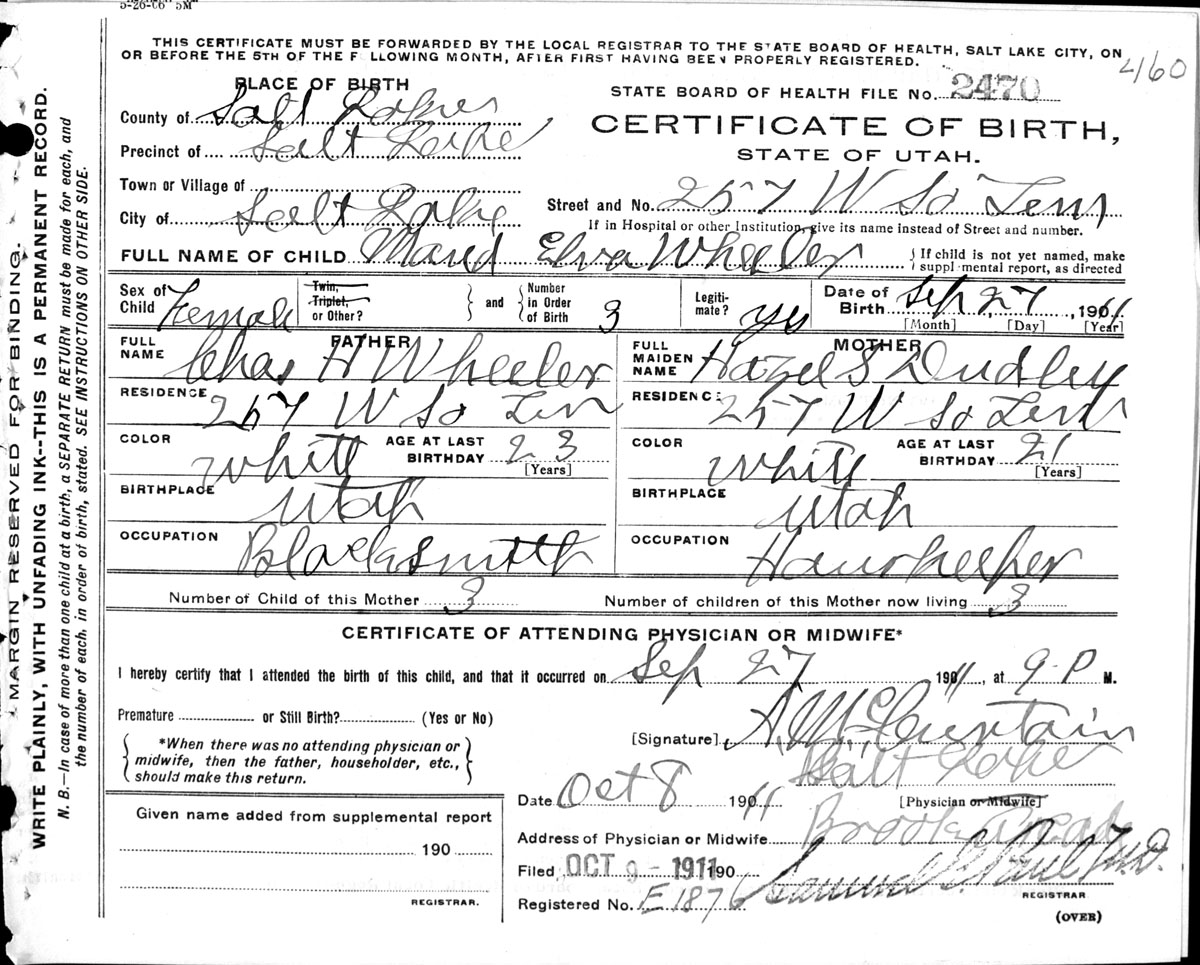 5-26-06 5M
THIS CERTIFICATE MUST BE FORWARDED BY THE LOCAL REGISTRAR TO THE STATE BOARD OF HEALTH, SALT LAKE CITY, ON
OR BEFORE THE 5TH OF THE FOLLOWING MONTH, AFTER FIRST HAVING BEEN PROPERLY REGISTERED.
460
PLACE OF BIRTH
STATE BOARD OF HEALTH FILE No. 2470
County of Salt Lake
CERTIFICATE OF BIRTH,
Precinct of Salt Lake
STATE OF UTAH.
Town or Village of
City of Salt Lake
Street and No. 257 W So Tem
If in Hospital or other Institution, give its name instead of Street and number.
FULL NAME OF CHILD Maud Elva Wheeler
If child is not yet named, make
supplemental report, as directed
Sex of Child Female
Twin, Triplet, or Other?
and
Number in Order of Birth 3
Legitimate? yes
Date of Birth Sep 27, 1911
[Month] [Day] [Year]
FATHER
FULL NAME Chas H Wheeler
RESIDENCE 257 W So Tem
COLOR White
AGE AT LAST BIRTHDAY 23
[Years]
BIRTHPLACE Utah
OCCUPATION Blacksmith
MOTHER
FULL MAIDEN NAME Hazel S Dudley
RESIDENCE 257 W So Tem
COLOR White
AGE AT LAST BIRTHDAY 21
[Years]
BIRTHPLACE Utah
OCCUPATION Houskeeper
Number of Child of this Mother 3
Number of children of this Mother now living 3
CERTIFICATE OF ATTENDING PHYSICIAN OR MIDWIFE*
I hereby certify that I attended the birth of this child, and that it occurred on Sep 27 1911, at 9 P M.
Premature or Still Birth? (Yes or No)
*When there was no attending physician or
midwife, then the father, householder, etc.,
should make this return.
[Signature] A. McCurtain
Salt Lake
Date Oct 8 1911
[Physician or Midwife]
Address of Physician or Midwife Brooks Arcade
Given name added from supplemental report
190
REGISTRAR.
Filed, OCT 9 - 1911 190
Samuel G. Paul M.D.
REGISTRAR
Registered No. E1876
(OVER)
MARGIN RESERVED FOR BINDING.
WRITE PLAINLY, WITH UNFADING INK--THIS IS A PERMANENT RECORD.
N. B.—In case of more than one child at a birth, a SEPARATE RETURN must be made for each, and
the number of each, in order of birth, stated. SEE INSTRUCTIONS ON OTHER SIDE.